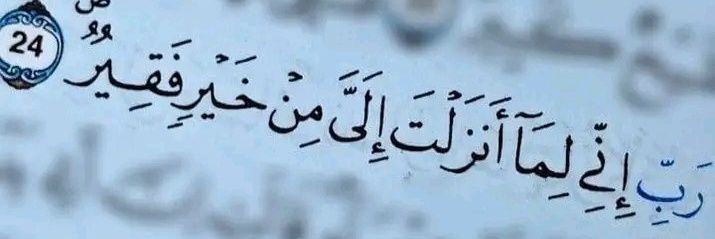 رَبِّ إِنِّي لِمَآ أَنزَلْتَ إِلَيَّ مِنْ خَيْرٍ فَقِيرٌ 24